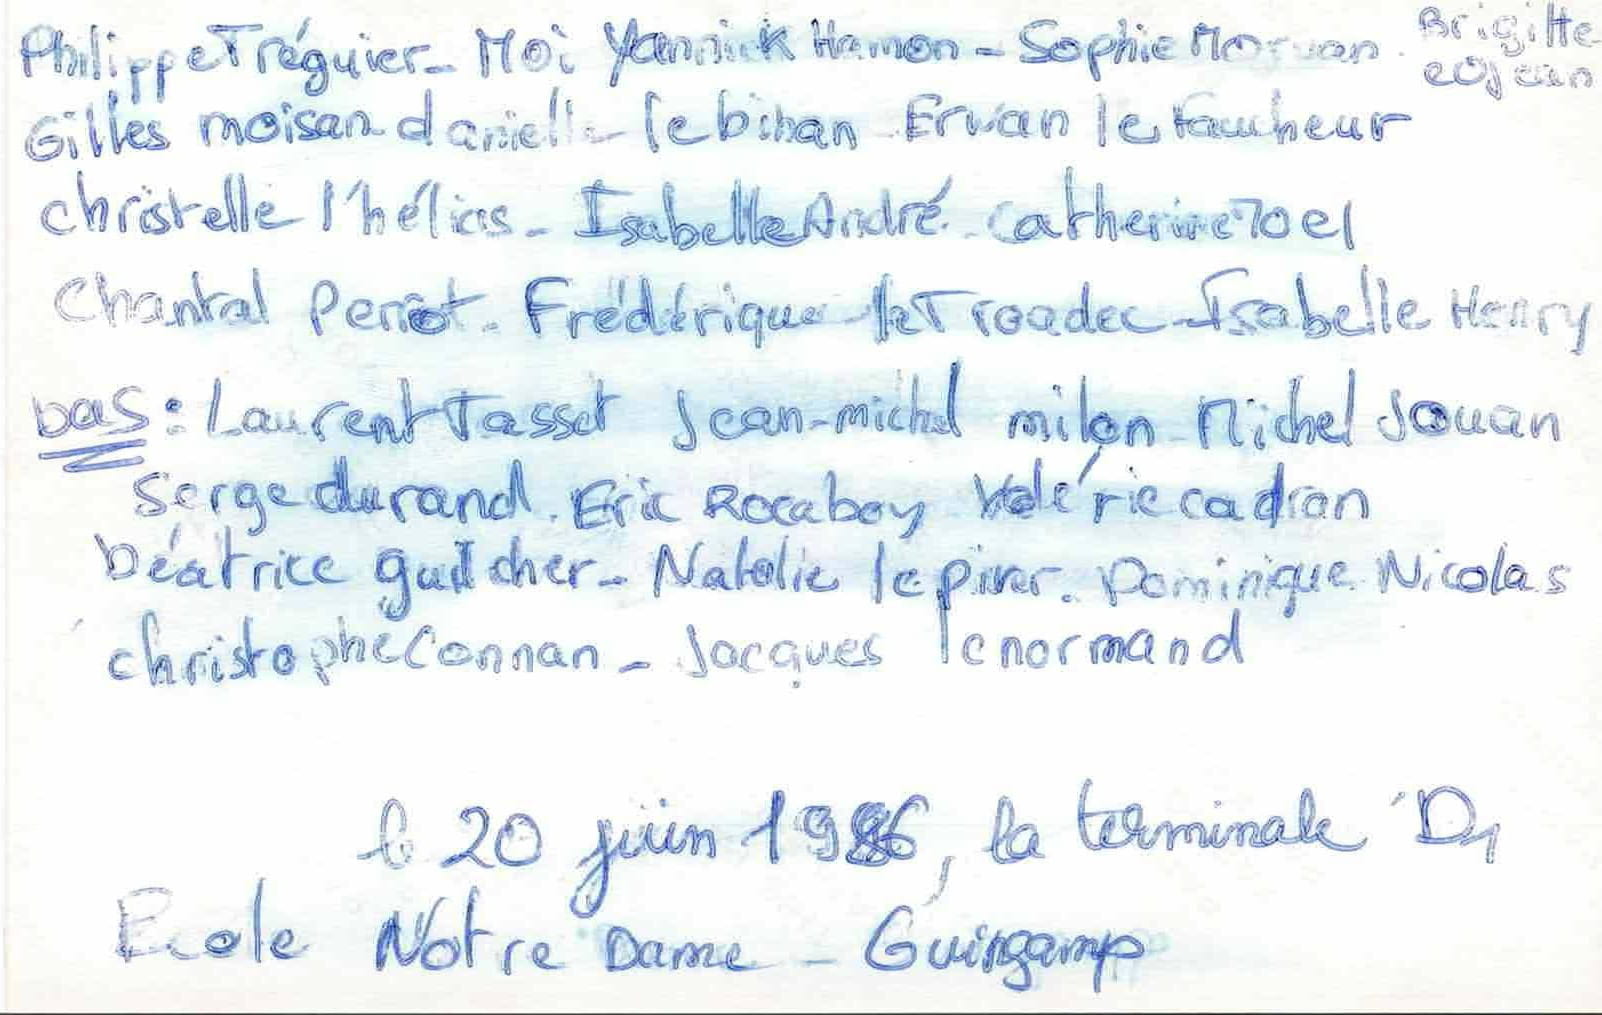 Philippe Tréguier - Moi Yannick Hamon - Sophie Morvan - Brigitte cojean
Gilles moisan danielle le bihan Erwan le faucheur
christelle l'hélias - Isabelle André - catherine Toel
Chantal Perrot - Frédérique le Troadec - Isabelle Henry
bas : Laurent Tasset Jean-michel milon - Michel Jouan
Serge durand. Eric Rocaboy Valérie cadran
béatrice guilcher - Natalie le piver. Dominique Nicolas
christophe Connan - Jacques lenormand
le 20 juin 1986, la terminale D1
Ecole Notre Dame - Guingamp